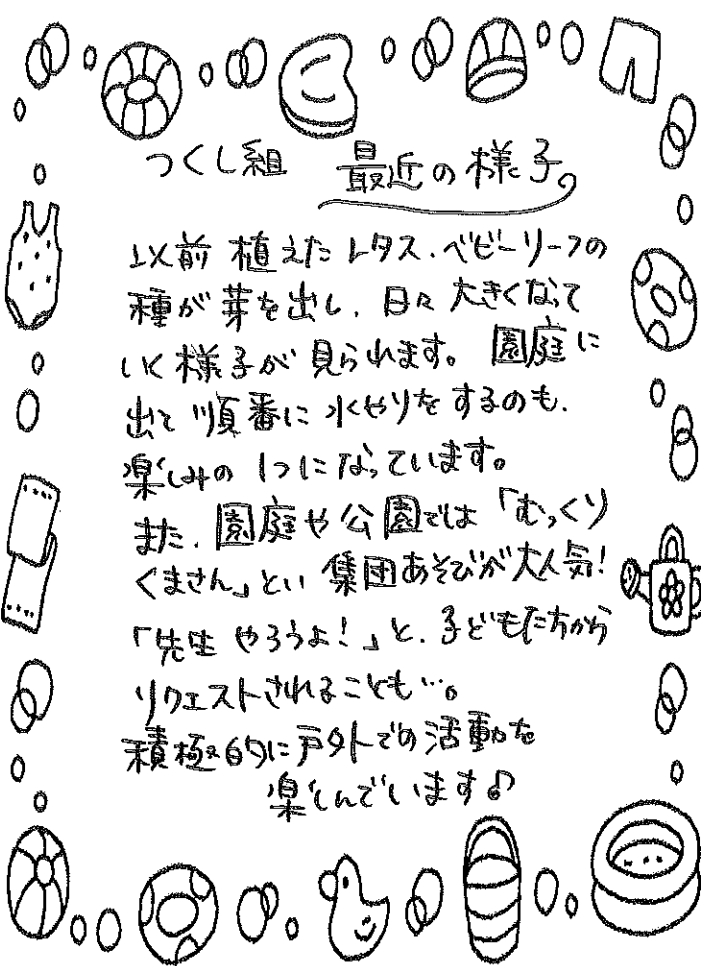 つくし組 最近の様子
以前 植えた レタス・ベビーリーフの
種が 芽を出し、日々 大きくなって
いく様子が 見られます。 園庭に
出て 順番に 水やりをするのも、
楽しみの 1つになっています。
また、園庭や公園では「むっくり
くまさん」とい 集団あそびが大人気!
「先生 やろうよ!」と、子どもた方から
リクエストされることも…。
積極的に戸外での活動を
楽しんでいます♪